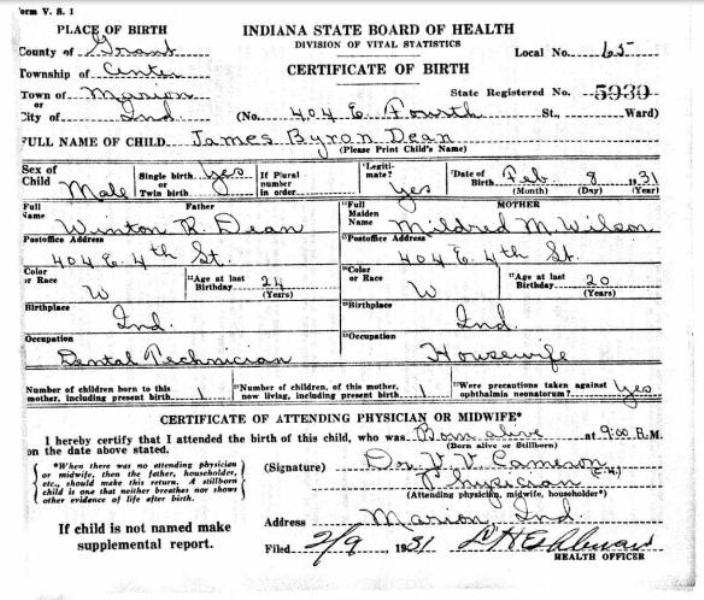 Form V. S. 1
PLACE OF BIRTH
INDIANA STATE BOARD OF HEALTH
County of Grant
DIVISION OF VITAL STATISTICS
Local No. 65
Township of Center
CERTIFICATE OF BIRTH
Town of Marion
State Registered No. 5939
or
City of Ind.
(No. 404 E. Fourth St., Ward)
FULL NAME OF CHILD James Byron Dean
(Please Print Child's Name)
Sex of Child Male
Single birth or Twin birth Yes
If Plural number in order
Legiti-mate? Yes
Date of Birth Feb 8 1931
(Month) (Day) (Year)
Full Name Father
Winton R. Dean
Full Maiden Name MOTHER
Mildred M Wilson
Postoffice Address
404 E. 4th St.
Postoffice Address
404 E. 4th St.
Color or Race W
Age at last Birthday 24 (Years)
Color or Race W
Age at last Birthday 20 (Years)
Birthplace
Ind.
Birthplace
Ind.
Occupation
Dental Technician
Occupation
Housewife
Number of children born to this mother, including present birth 1
Number of children, of this mother, now living, including present birth 1
Were precautions taken against ophthalmin neonatorum? Yes
CERTIFICATE OF ATTENDING PHYSICIAN OR MIDWIFE*
I hereby certify that I attended the birth of this child, who was Born alive at 9:00 M.
(Born alive or Stillborn)
on the date above stated.
*When there was no attending physician
or midwife, then the father, householder,
etc., should make this return. A stillborn
child is one that neither breathes nor shows
other evidence of life after birth.
(Signature) Dr. V. V. Cameron
Physician
(Attending physician, midwife, householder*)
If child is not named make
supplemental report.
Address Marion Ind.
Filed 2/9, 1931
HEALTH OFFICER